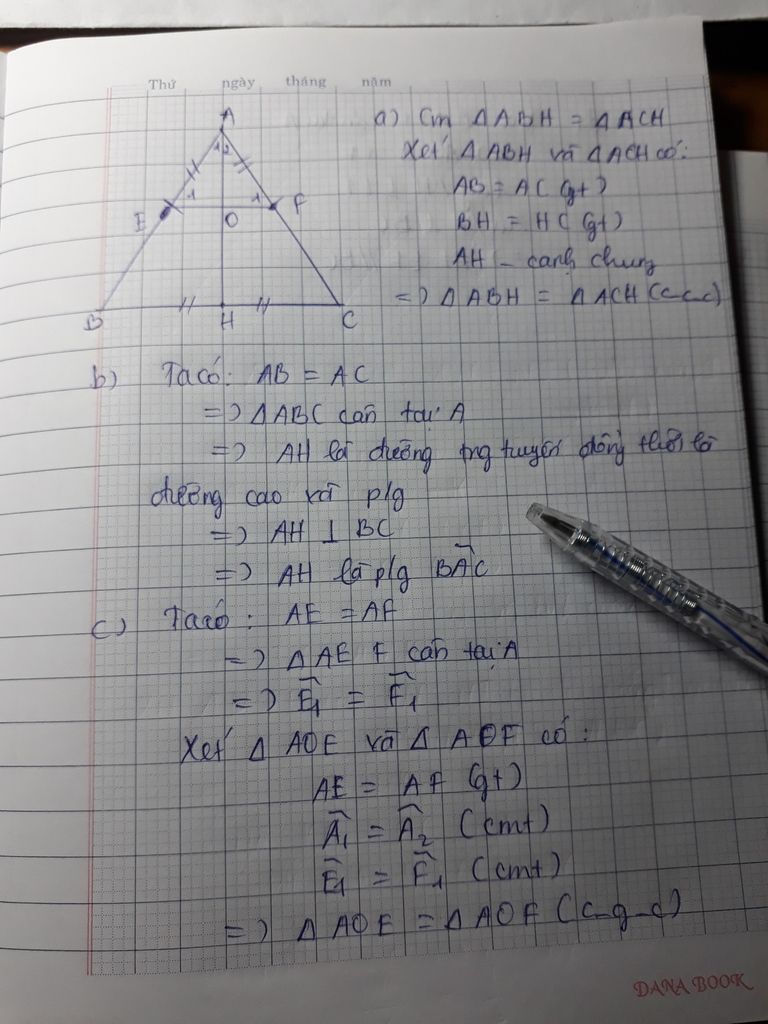 Thứ ngày tháng năm
A
1 2
1 1
E F
O
B H C
a) Cm Δ ABH = Δ ACH
Xét Δ ABH và Δ ACH có:
AB = AC (gt)
BH = HC (gt)
AH - cạnh chung
=> Δ ABH = Δ ACH (c-c-c)
b) Ta có: AB = AC
=> Δ ABC cân tại A
=> AH là đường trung tuyến đồng thời là
đường cao và p/g
=> AH ⊥ BC
=> AH là p/g BÂC
c) Ta có: AE = AF
=> Δ AEF cân tại A
=> Ê₁ = F̂₁
Xét Δ AOE và Δ AOF có:
AE = AF (gt)
Â₁ = Â₂ (cmt)
Ê₁ = F̂₁ (cmt)
=> Δ AOE = Δ AOF (c-g-c)
DANA BOOK